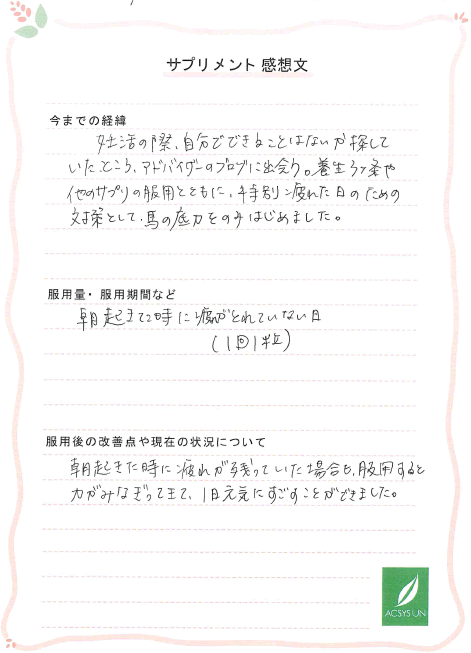 サプリメント 感想文
今までの経緯
妊活の際、自分でできることはないか探して
いたところ、アドバイザーのブログに出会う。養生5ヶ条や
他のサプリの服用とともに、特別疲れた日のための
対策として、馬の底力をのみはじめました。
服用量・服用期間など
朝起きて時に疲れがとれていない日
(1回1粒)
服用後の改善点や現在の状況について
朝起きた時に疲れが残っていた場合も、服用すると
力がみなぎってきて、1日元気にすごすことができました。
ACSYS UN